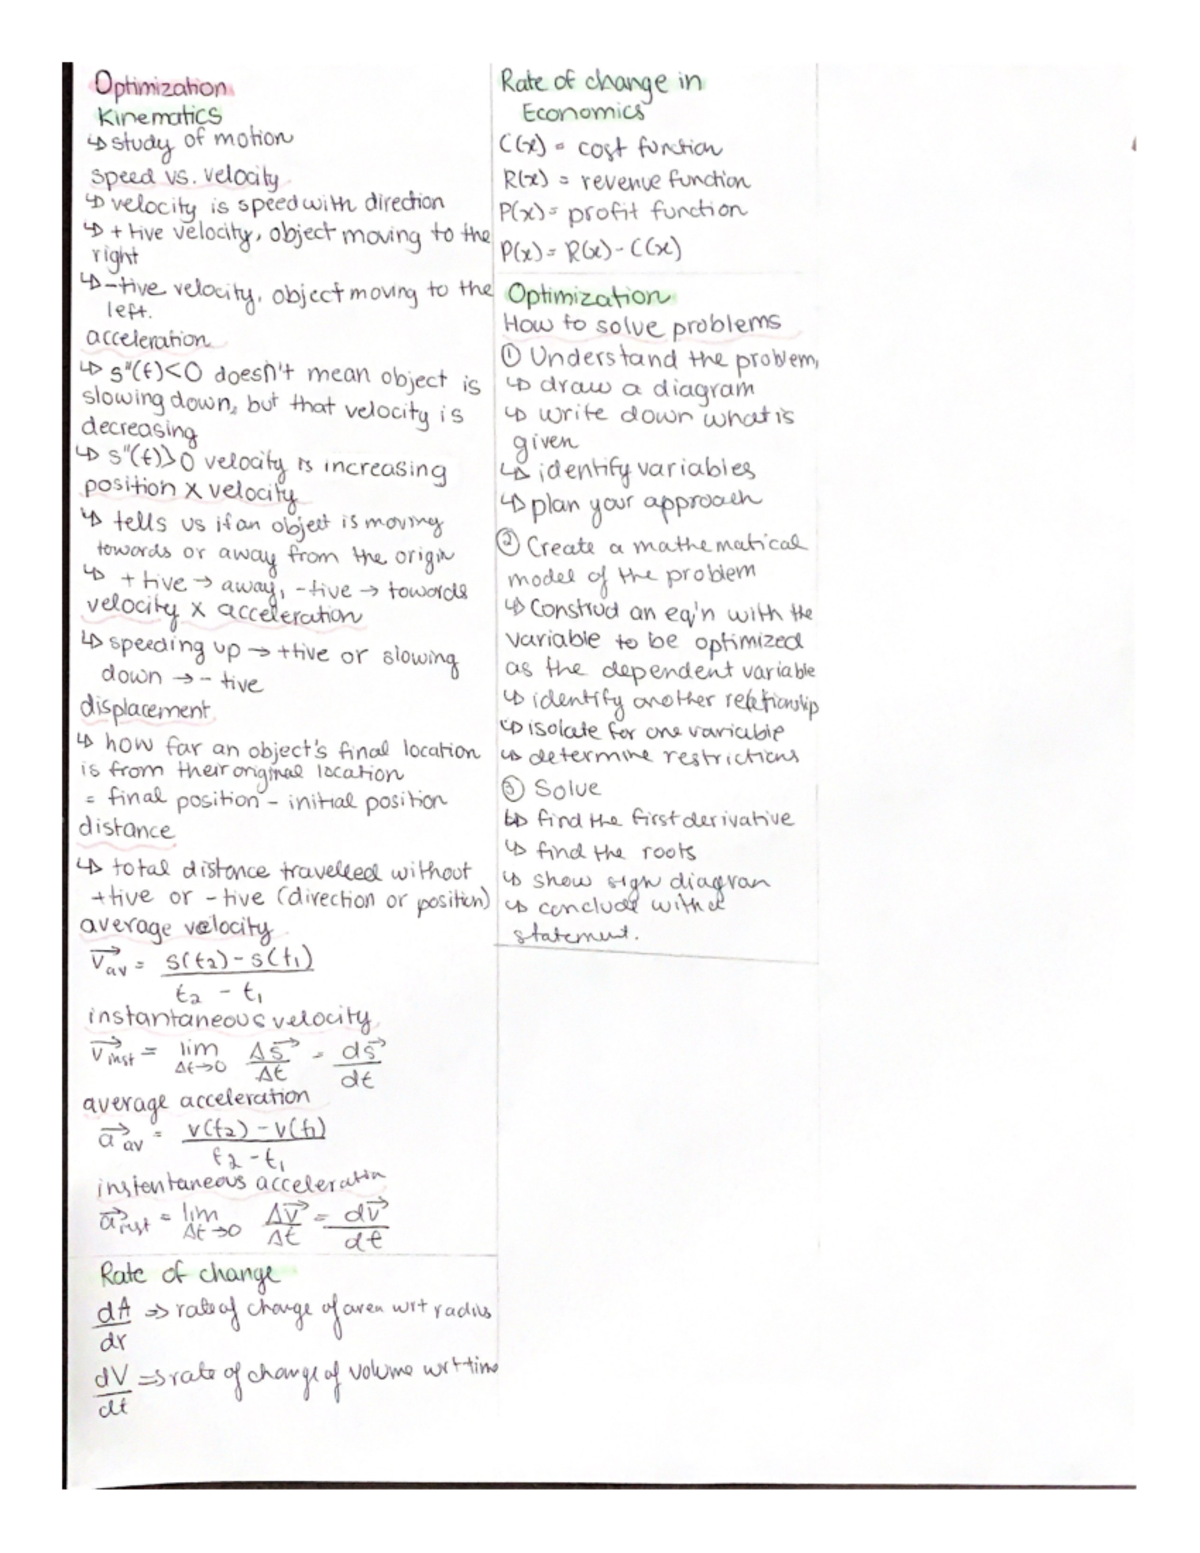 Optimization
Kinematics
↳ study of motion
speed vs. velocity
↳ velocity is speed with direction
↳ +tive velocity, object moving to the
right
↳ -tive velocity, object moving to the
left.
acceleration
↳ s"(t)<0 doesn't mean object is
slowing down, but that velocity is
decreasing
↳ s"(t)>0 velocity is increasing
position x velocity
↳ tells us if an object is moving
towards or away from the origin
↳ +tive → away, -tive → towards
velocity x acceleration
↳ speeding up → +tive or slowing
down → -tive
displacement
↳ how far an object's final location
is from their original location
= final position - initial position
distance
↳ total distance travelled without
+tive or -tive (direction or position)
average velocity
v⃗av = s(t2) - s(t1)
t2 - t1
instantaneous velocity
v⃗inst = lim Δs⃗ = ds⃗
Δt→0 Δt dt
average acceleration
a⃗av = v(t2) - v(t1)
t2 - t1
instentaneous acceleratin
a⃗inst = lim Δv⃗ = dv⃗
Δt→0 Δt dt
Rate of change
dA ⇒ rate of change of area wrt radius
dr
dV ⇒ rate of change of volume wrt time
dt
Rate of change in
Economics
C(x) = cost function
R(x) = revenue function
P(x) = profit function
P(x) = R(x) - C(x)
Optimization
How to solve problems
① Understand the problem,
↳ draw a diagram
↳ write down what is
given
↳ identify variables
↳ plan your approach
② Create a mathematical
model of the problem
↳ Construct an eq'n with the
variable to be optimized
as the dependent variable
↳ identify another relationship
↳ isolate for one variable
↳ determine restrictions
③ Solve
↳ find the first derivative
↳ find the roots
↳ show sign diagram
↳ conclude with a
statement.